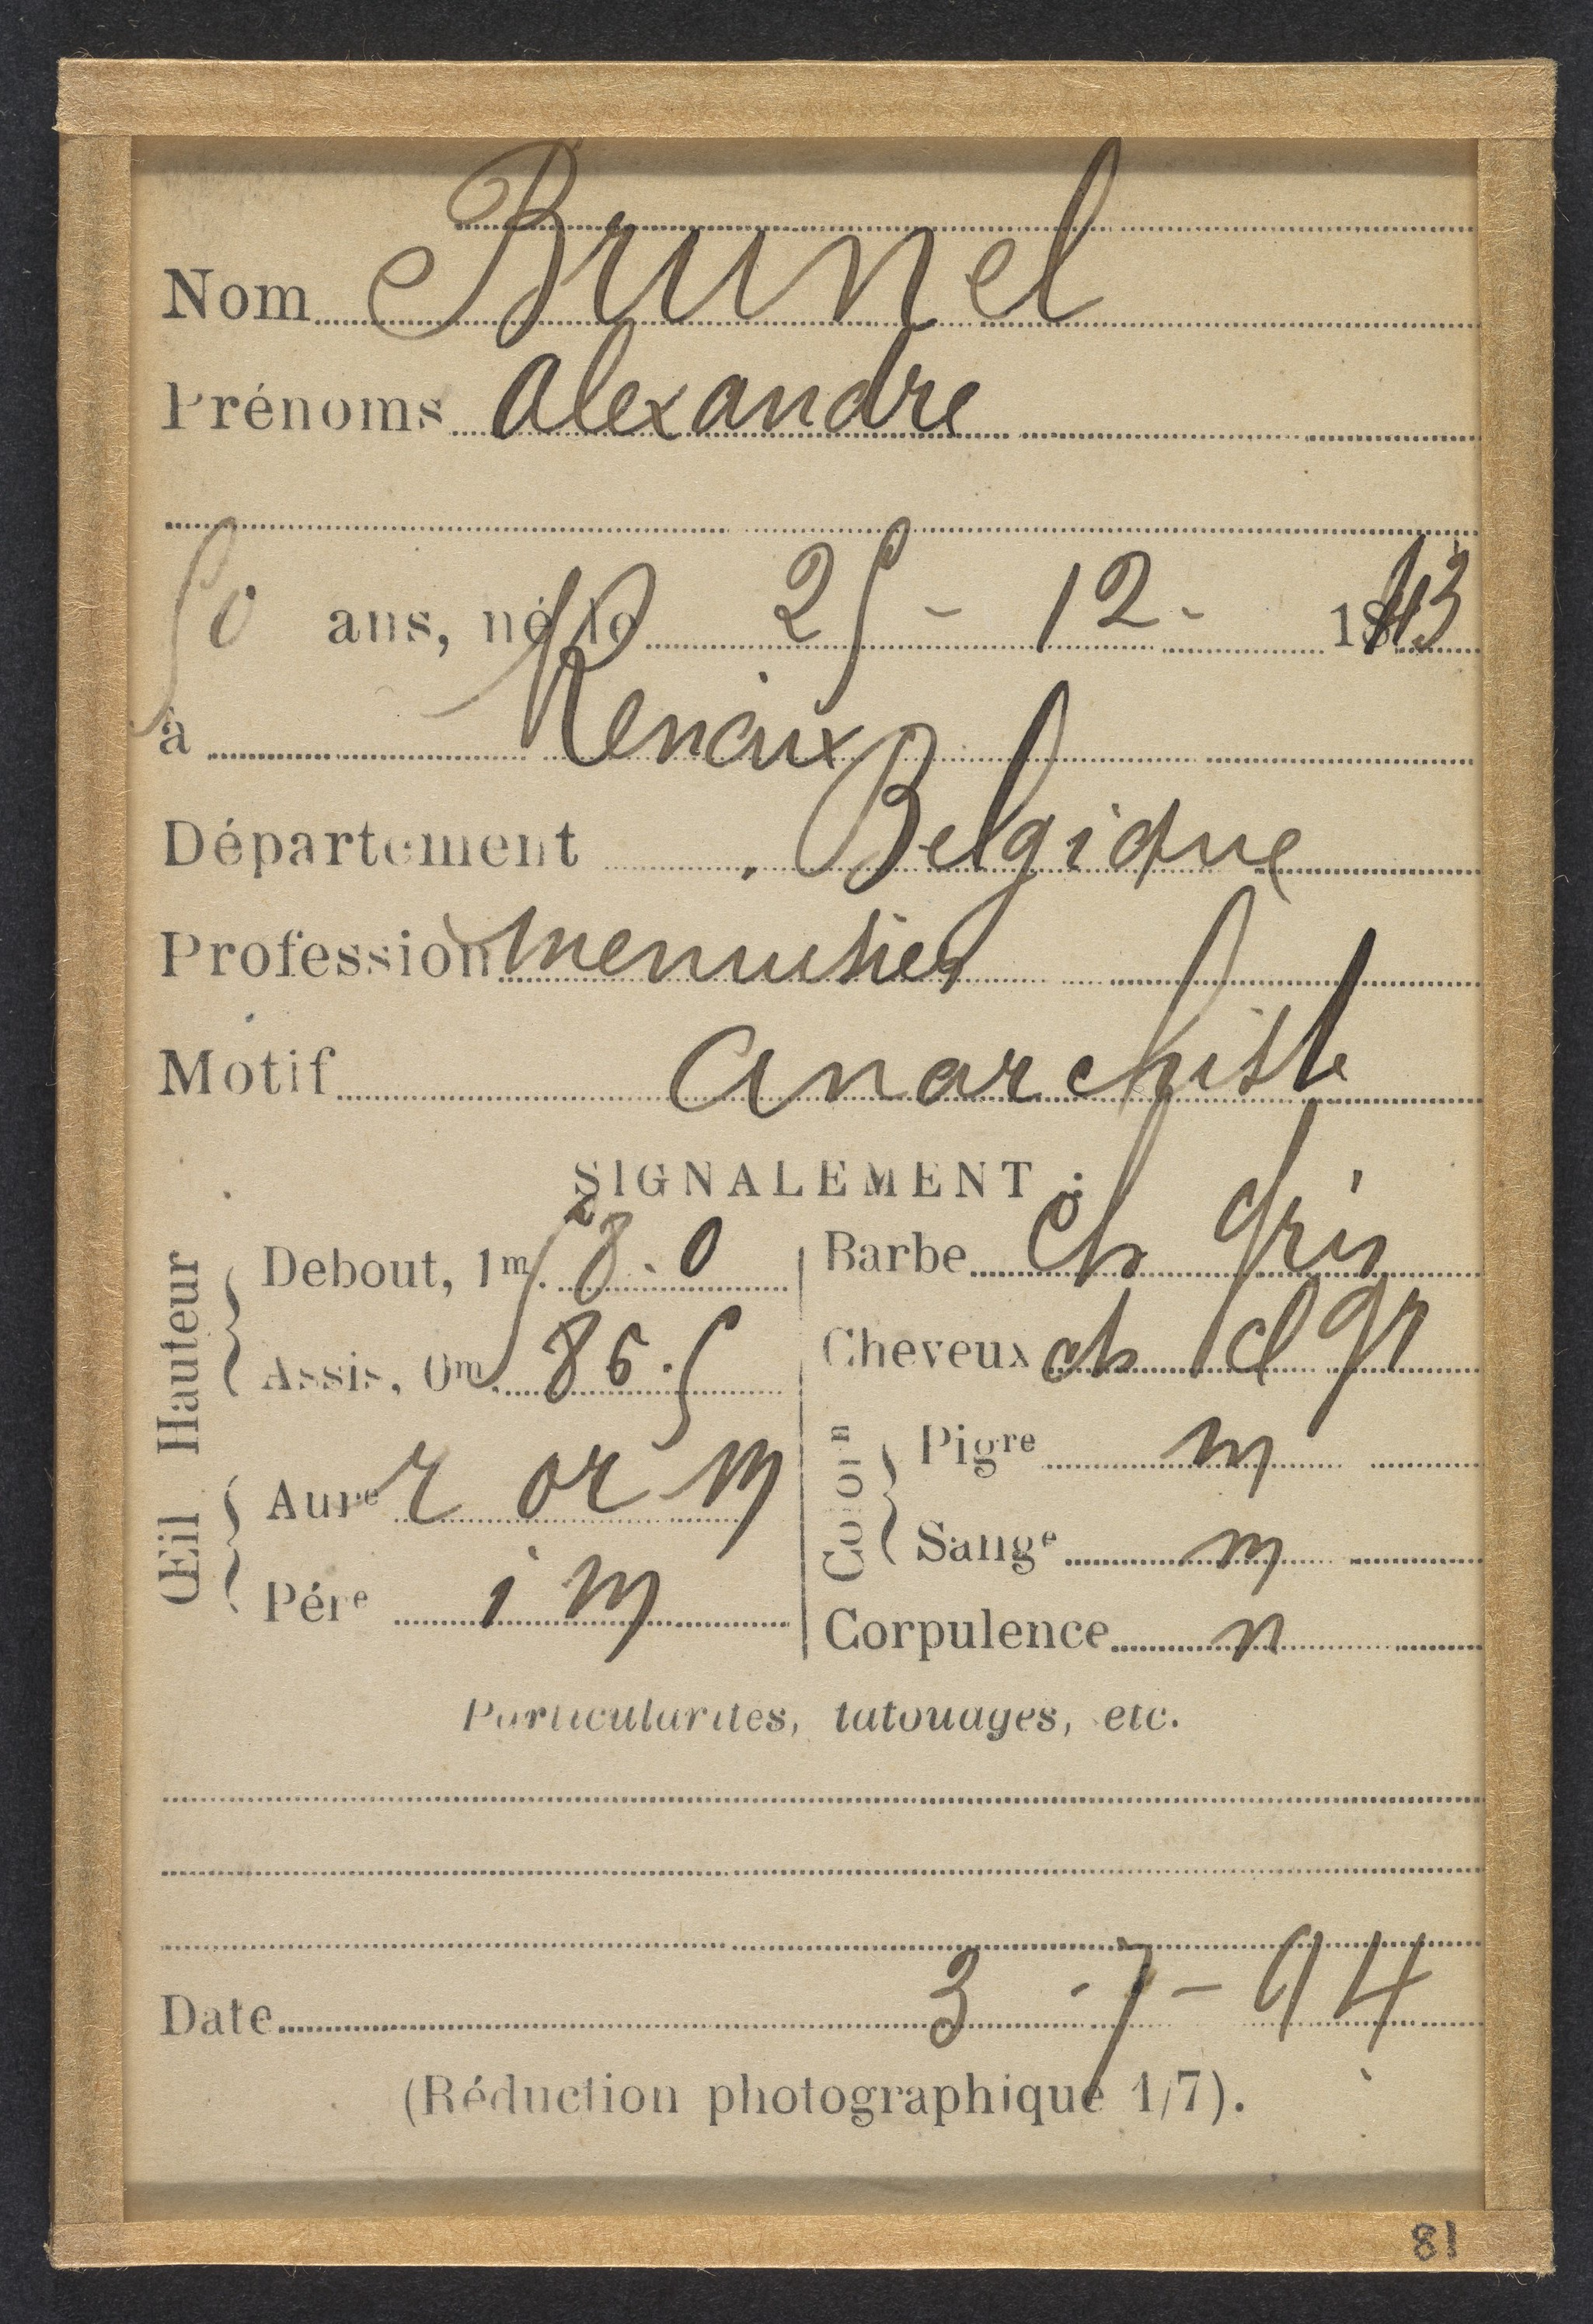 Nom Brunel
Prénoms Alexandre
50 ans, né le 25 - 12 - 1843
à Renaix
Département Belgique
Profession menuisier
Motif anarchiste
SIGNALEMENT.
Hauteur
Debout, 1m 58.0
Assis, 0m 86.5
Œil
Aure r or m
Pére i m
Barbe ch gris
Cheveux ch cl gr
Coloron
Pigre m
Sange m
Corpulence n
Particularités, tatouages, etc.
Date 3 - 7 - 94
(Réduction photographique 1/7).
81